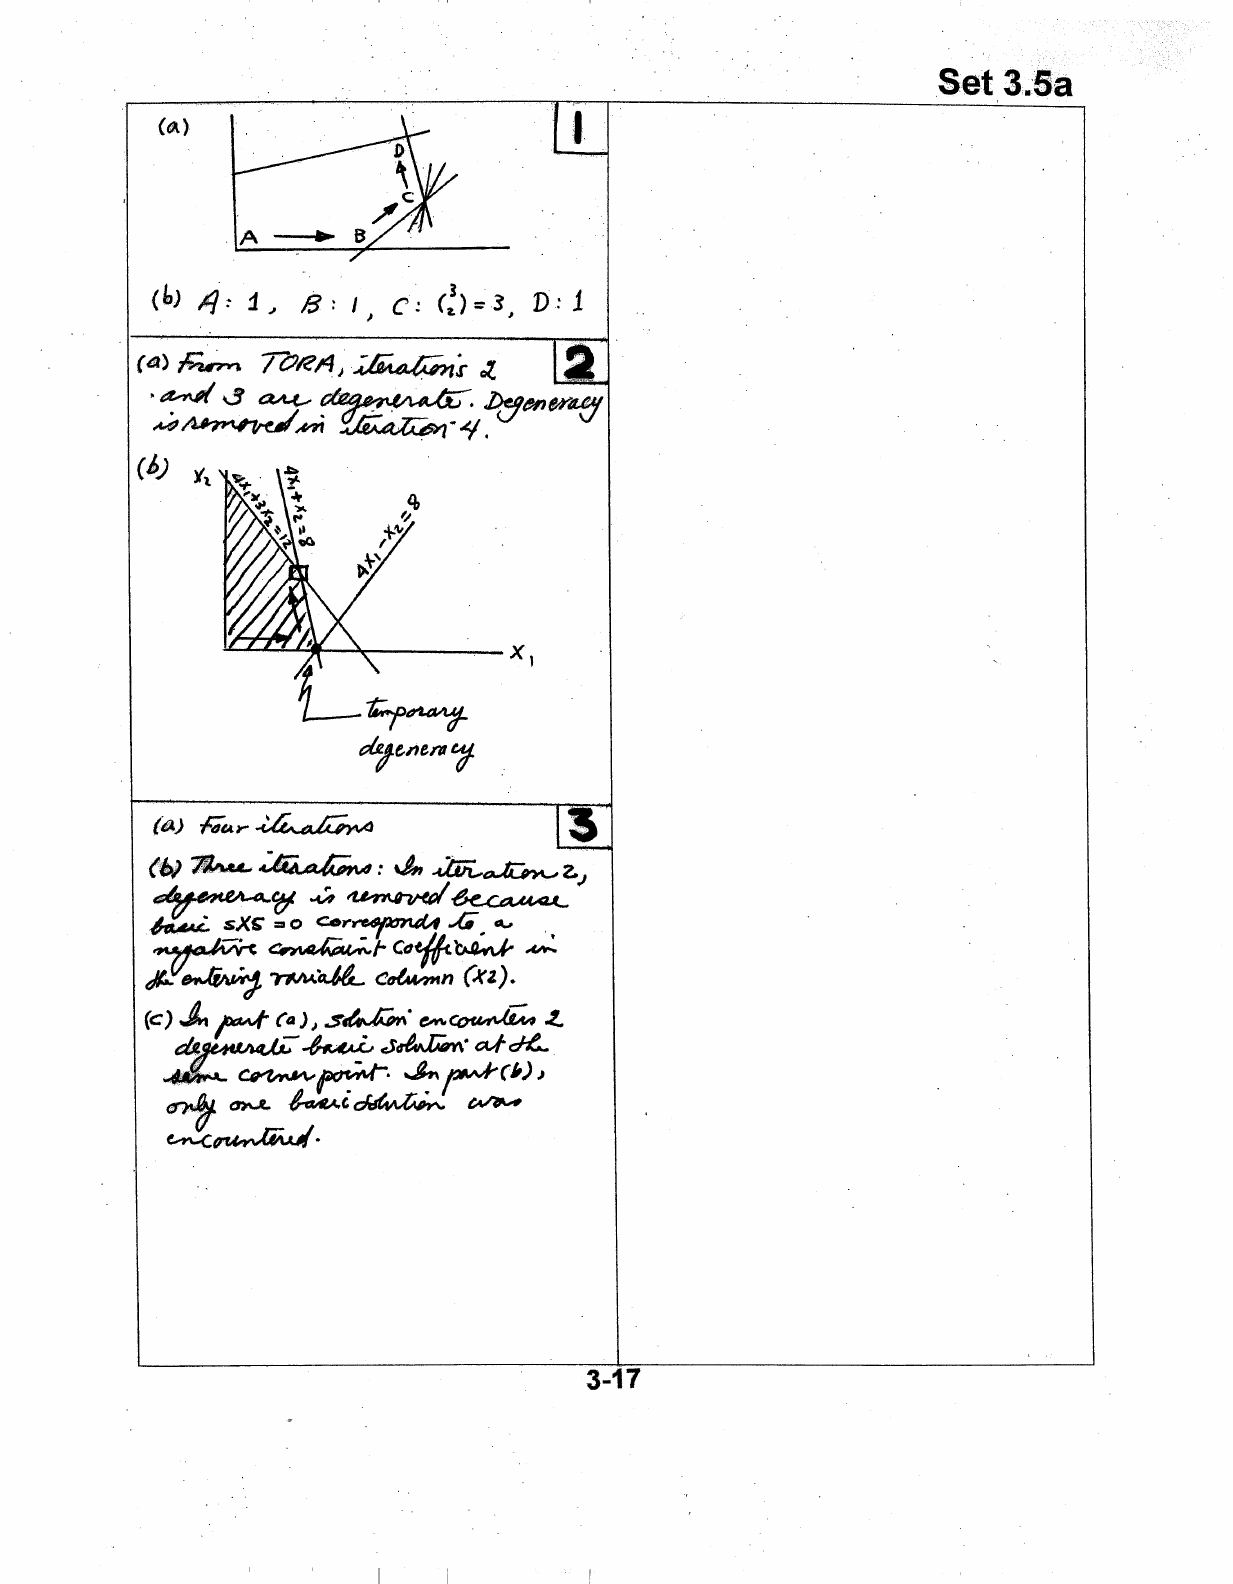 Set 3.5a
1
(a)
D
C
A
B
(b) A: 1, B: 1, C: (3 2) = 3, D: 1
2
(a) From TORA, iterations 2
and 3 are degenerate. Degeneracy
is removed in iteration 4.
(b)
X2
4X1+3X2=12
4X1+X2=8
4X1-X2=8
X1
temporary
degeneracy
3
(a) Four iterations
(b) Three iterations: In iteration 2,
degeneracy is removed because
basic sX5 = 0 corresponds to a
negative constraint coefficient in
the entering variable column (X2).
(c) In part (a), solution encounters 2
degenerate basic solution at the
same corner point. In part (b),
only one basic solution was
encountered.
3-17